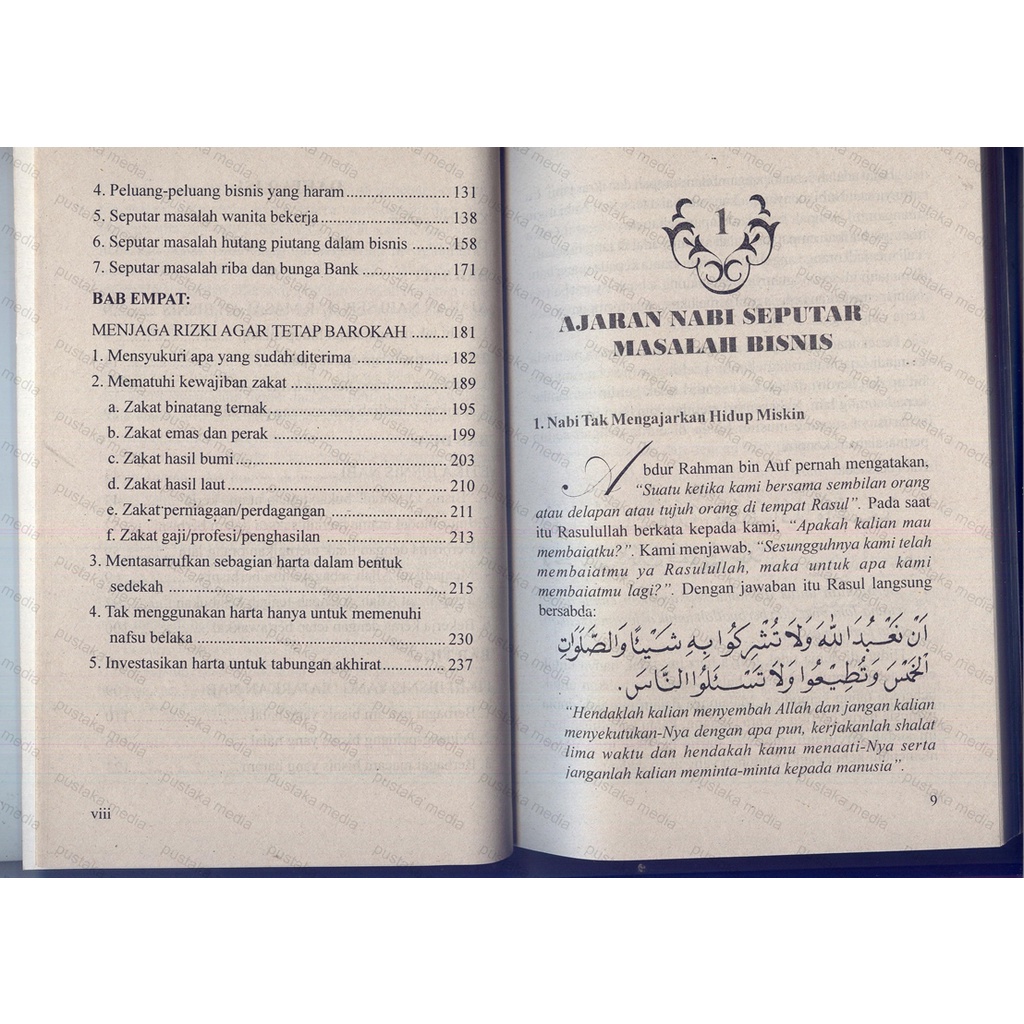 4. Peluang-peluang bisnis yang haram........................ 131
5. Seputar masalah wanita bekerja.............................. 138
6. Seputar masalah hutang piutang dalam bisnis ......... 158
7. Seputar masalah riba dan bunga Bank .................... 171
BAB EMPAT:
MENJAGA RIZKI AGAR TETAP BAROKAH ......... 181
1. Mensyukuri apa yang sudah diterima ..................... 182
2. Mematuhi kewajiban zakat ..................................... 189
a. Zakat binatang ternak.......................................... 195
b. Zakat emas dan perak ......................................... 199
c. Zakat hasil bumi.................................................. 203
d. Zakat hasil laut.................................................... 210
e. Zakat perniagaan/perdagangan ........................... 211
f. Zakat gaji/profesi/penghasilan ............................ 213
3. Mentasarrufkan sebagian harta dalam bentuk
sedekah ................................................................ 215
4. Tak menggunakan harta hanya untuk memenuhi
nafsu belaka ......................................................... 230
5. Investasikan harta untuk tabungan akhirat.............. 237
viii
1
AJARAN NABI SEPUTAR
MASALAH BISNIS
1. Nabi Tak Mengajarkan Hidup Miskin
Abdur Rahman bin Auf pernah mengatakan,
“Suatu ketika kami bersama sembilan orang
atau delapan atau tujuh orang di tempat Rasul”. Pada saat
itu Rasulullah berkata kepada kami, “Apakah kalian mau
membaiatku?”. Kami menjawab, “Sesungguhnya kami telah
membaiatmu ya Rasulullah, maka untuk apa kami
membaiatmu lagi?”. Dengan jawaban itu Rasul langsung
bersabda:
اَنْ نَعْبُدَ اللهَ وَلَا تُشْرِكُوا بِهِ شَيْئًا وَالصَّلَوَاتِ
الْخَمْسَ وَتُطِيْعُوا وَلَا تَسْئَلُوا النَّاسَ.
“Hendaklah kalian menyembah Allah dan jangan kalian
menyekutukan-Nya dengan apa pun, kerjakanlah shalat
lima waktu dan hendakah kamu menaati-Nya serta
janganlah kalian meminta-minta kepada manusia”.
9
pustaka media